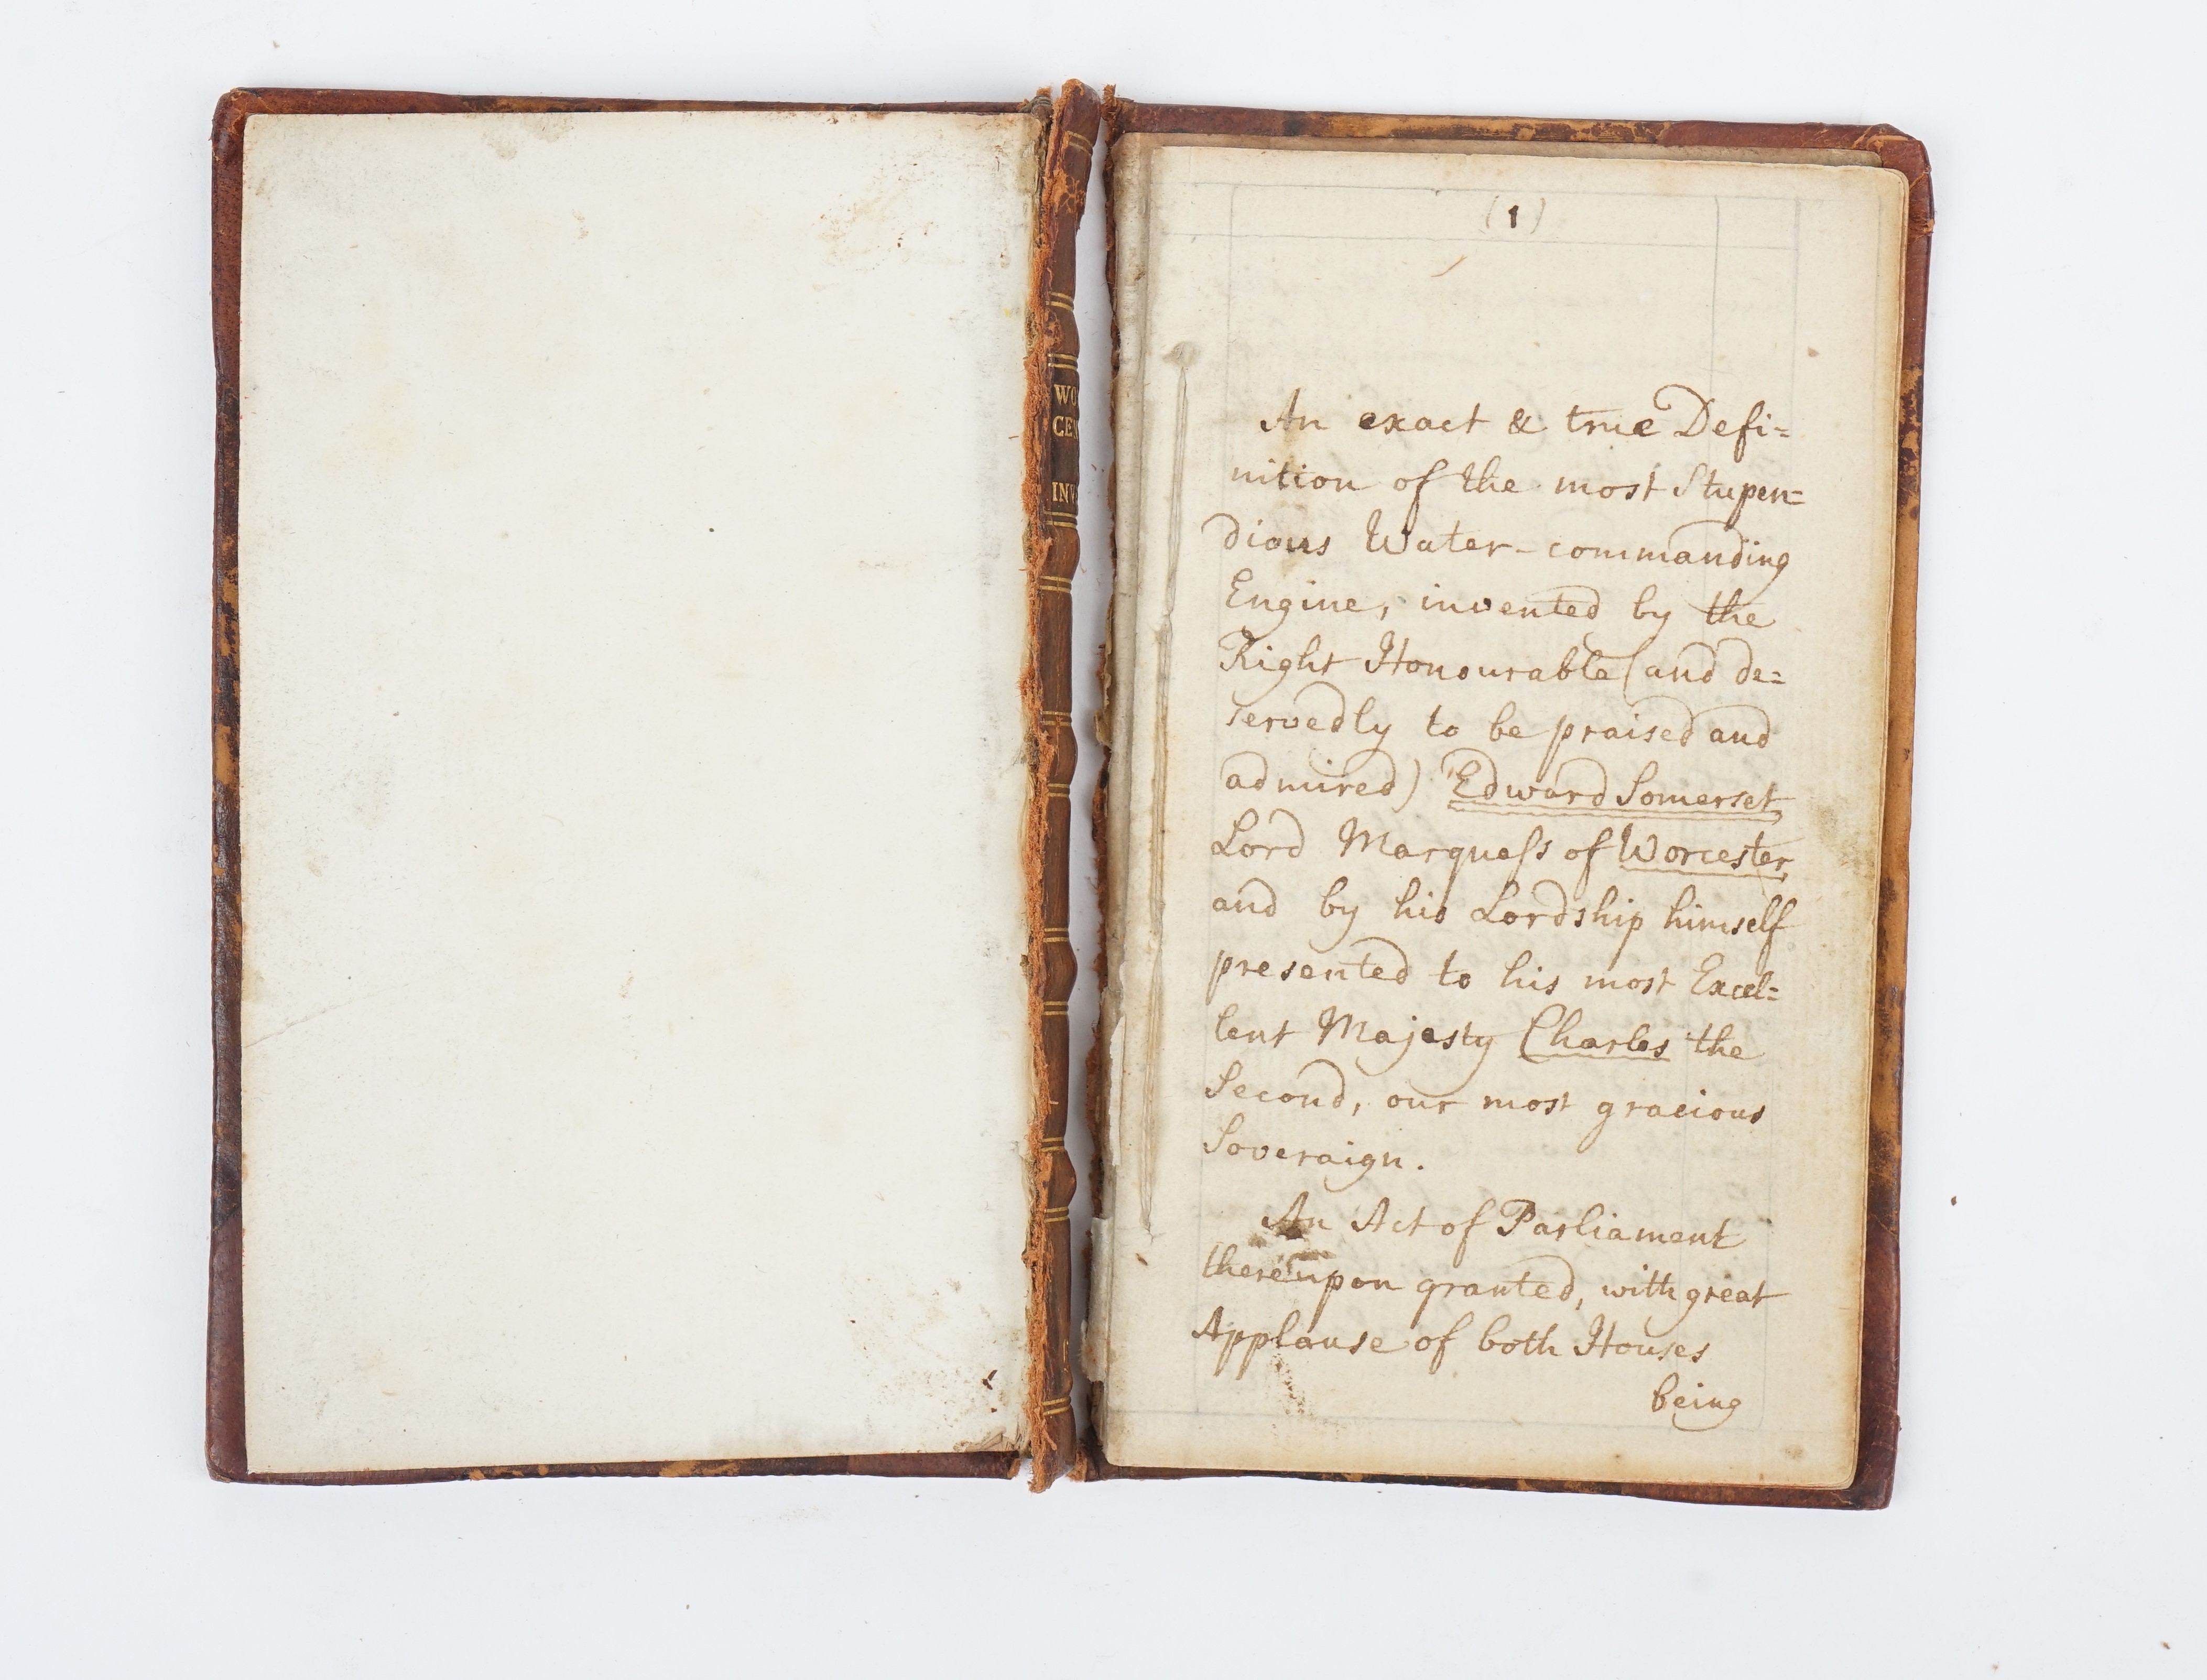 WO
CEN
INV
(1)
An exact & true Defi=
nition of the most Stupen=
dious Water-commanding
Engine, invented by the
Right Honourable (and de=
servedly to be praised and
admired) Edward Somerset,
Lord Marqueſs of Worcester,
and by his Lordship himself
presented to his most Excel=
lent Majesty Charles the
Second, our most gracious
Soveraign.
An Act of Parliament
thereupon granted, with great
Applause of both Houses
being